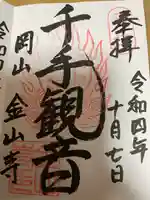 奉拝
令和四年
十月七日
千手観音
岡山
金山寺
令和